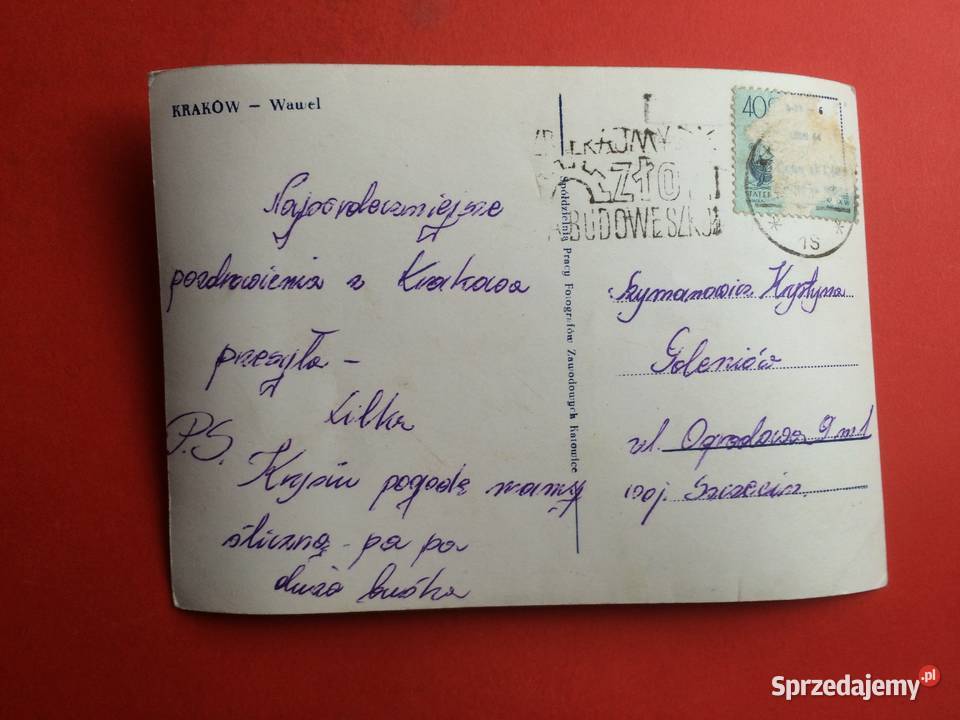 KRAKÓW – Wawel
Najserdeczniejsze
pozdrowienia z Krakowa
przesyła –
Lilka
P.S.
Krysiu pogodę mamy
śliczną – pa pa
duża buśka
Spółdzielnia Pracy Fotografów Zawodowych Katowice
ZŁO
BUDOWE SZKÓ
40
15
Szymanowicz Krystyna
Goleniów
ul. Ogrodowa 9 m 1
woj. Szczecin.
Sprzedajemy.pl